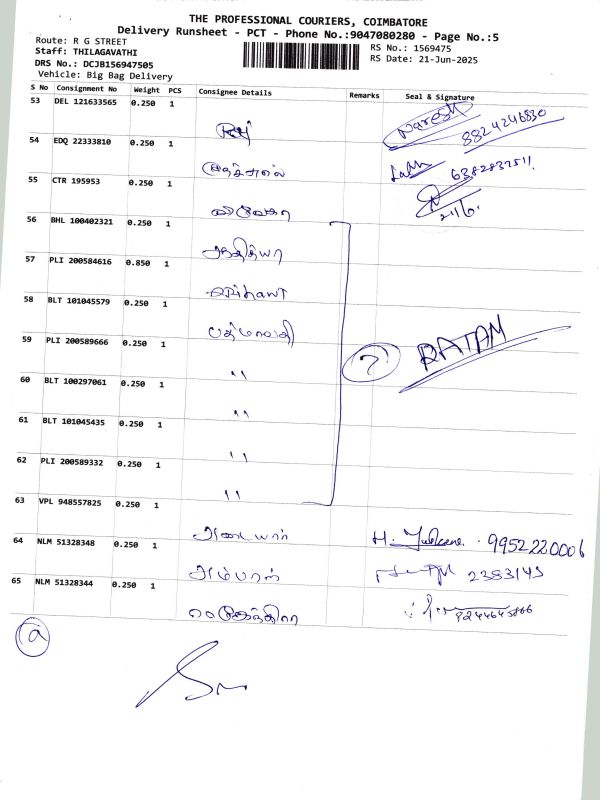 THE PROFESSIONAL COURIERS, COIMBATORE
Delivery Runsheet - PCT - Phone No.:9047080280 - Page No.:5
Route: R G STREET
RS No.: 1569475
Staff: THILAGAVATHI
RS Date: 21-Jun-2025
DRS No.: DCJB156947505
Vehicle: Big Bag Delivery
S No Consignment No Weight PCS Consignee Details Remarks Seal & Signature
53 DEL 121633565 0.250 1
Naresh
8824246830
54 EDQ 22333810 0.250 1
55 CTR 195953 0.250 1
56 BHL 100402321 0.250 1
57 PLI 200584616 0.850 1
58 BLT 101045579 0.250 1
பத்மாவதி
59 PLI 200589666 0.250 1
"
7 RATAM
60 BLT 100297061 0.250 1
"
61 BLT 101045435 0.250 1
"
62 PLI 200589332 0.250 1
"
63 VPL 948557825 0.250 1
அடையார் 9952220006
64 NLM 51328348 0.250 1
அம்பாள் 2383145
65 NLM 51328344 0.250 1
a